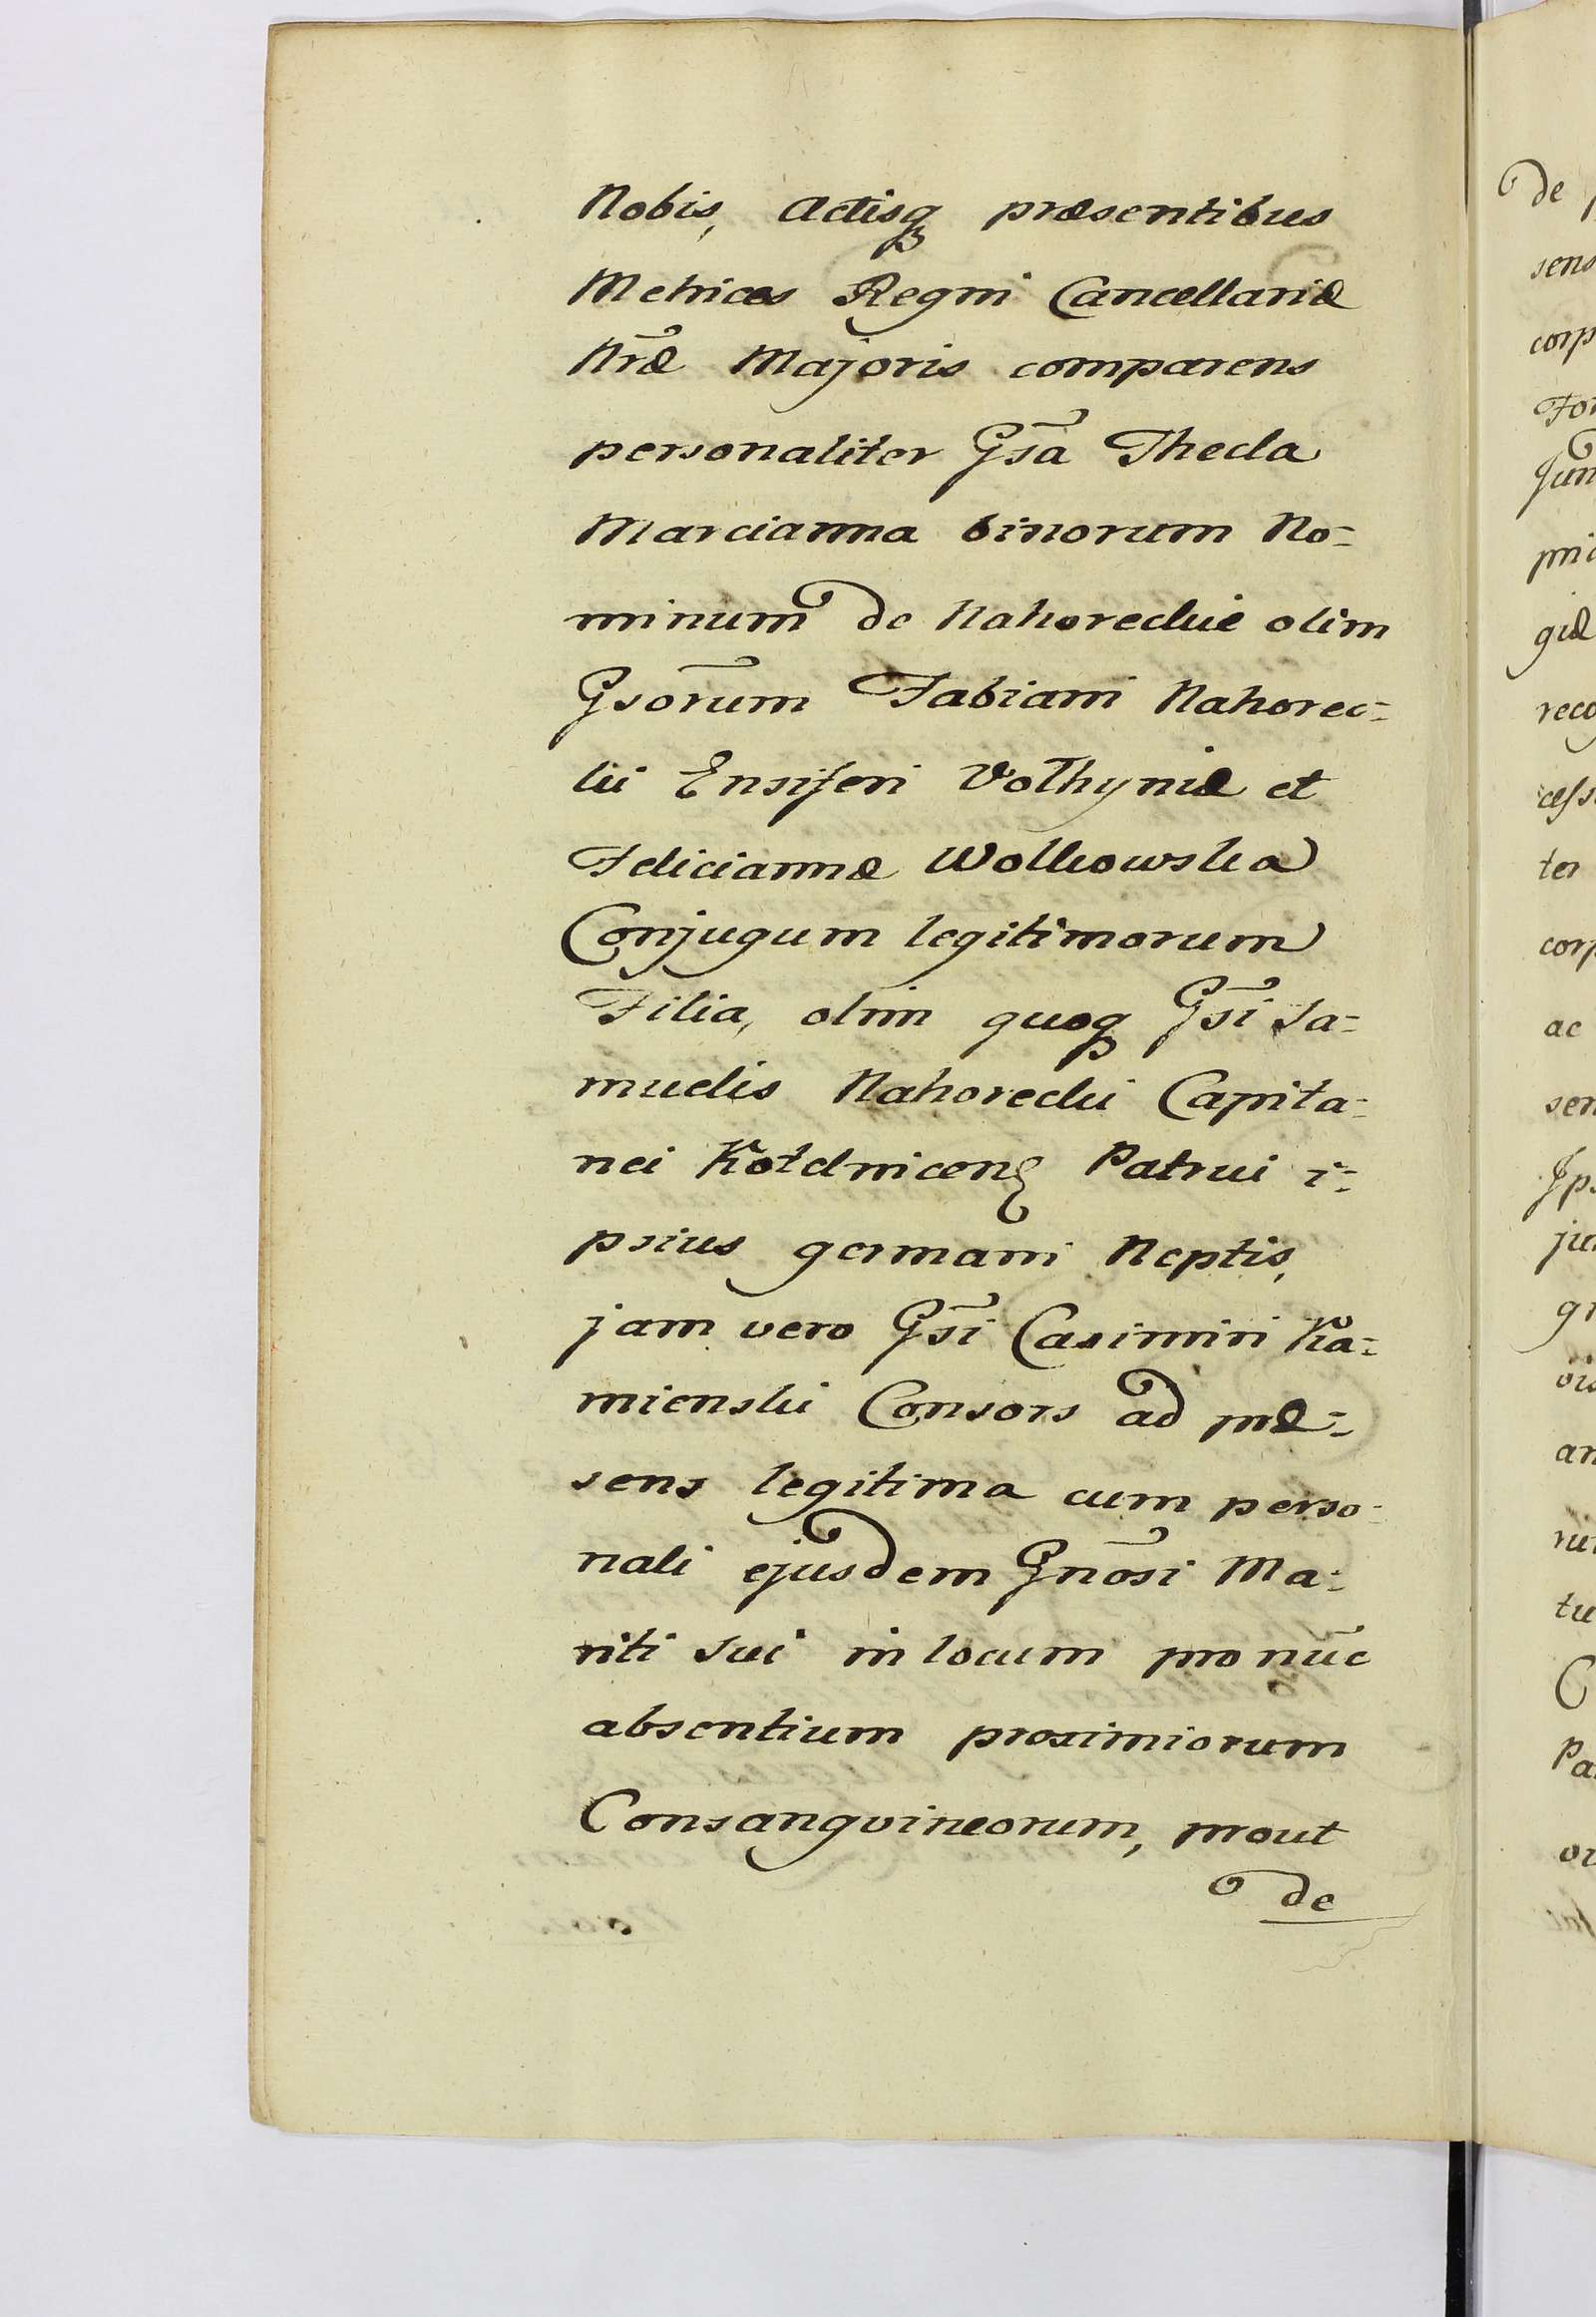 Nobis, Actisq præsentibus
Metrices Regni Cancellariæ
Nr̃æ Majoris comparens
personaliter Gs̃a Thecla
Marcianna binorum No=
minum de Nahoreckie olim
Gsõrum Fabiani Nahorec=
kii Ensiferi Volhyniæ et
Feliciannæ Wolkowska
Conjugum legitimorum
Filia, olim quoq Gs̃i Sa=
muelis Nahorecki Capita=
nei Patrui i=
psius germani Neptis,
jam vero Gs̃i Casimiri Ka=
mienski Consors ad præ=
sens legitima cum perso=
nali ejusdem Gnõsi Ma=
riti sui in locum pro nũc
absentium proximiorum
Consangvineorum, prout
de
de
sens
corp
ter
corp
ac